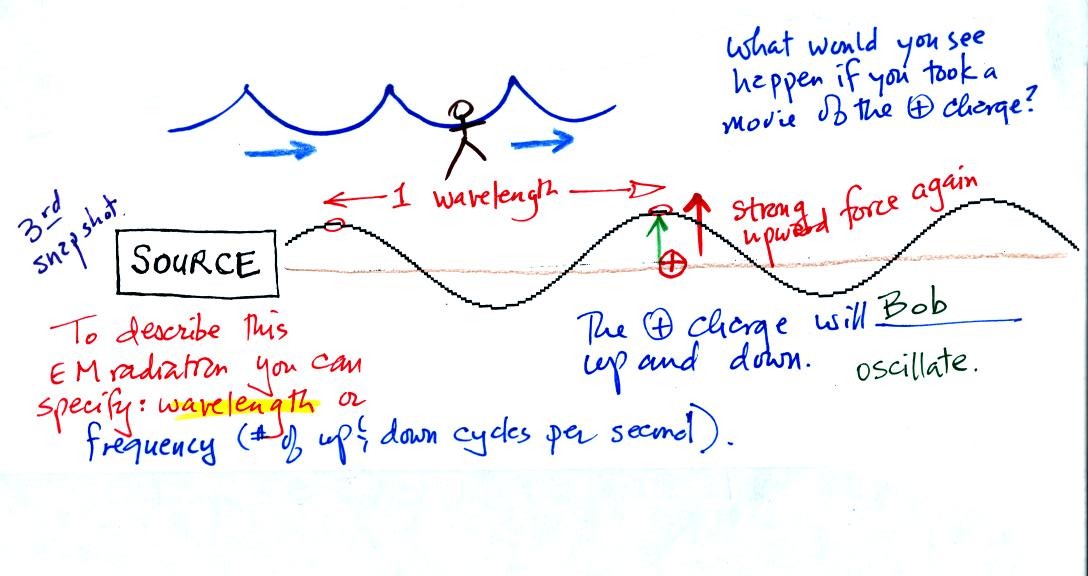 What would you see
happen if you took a
movie of the ⊕ charge?
1 wavelength
3rd
snapshot.
SOURCE
strong
upward force again
+
The ⊕ charge will Bob
up and down.
oscillate.
To describe this
EM radiation you can
specify: wavelength or
frequency (# of up & down cycles per second).